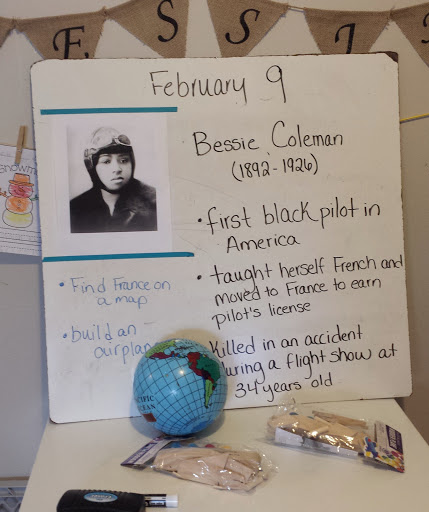 E S S I
February 9
Bessie Coleman
(1892-1926)
• first black pilot in
America
• taught herself French and
moved to France to earn
pilot's license
Killed in an accident
during a flight show at
34 years old
• Find France on
a map
• build an
airplane
PACIFIC
OCEAN